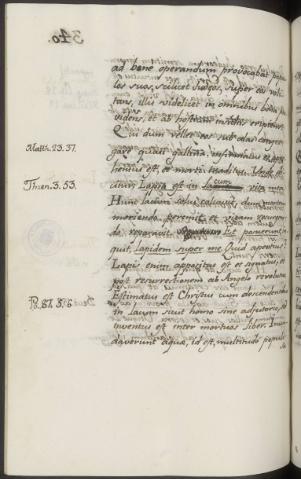 340.
ad bene operandum provocabat popu
les suas, scilicet Judæos, super eos voli
tans, illis videlicet in omnibus bonis pro
videns, et ab hostium manibus eripiens
Qui dum vellet eos sub alas congre
Matth. 23. 37.
gare quasi gallina, infirmatus et appre
hensus est, et morti traditus.
Thren. 3. 53.
Lapsa est in lacum vita mea
Hunc lacum solus calcavit, dum mortem
moriendo peremit, et vitam resurgen
do reparavit. Et posuerunt, in
quit, lapidem super me. Quid apertius?
Lapis enim appositus est et signatus, et
post resurrectionem ab Angelo revolutus
Ps. 87. 5. 6.
Estimatus est Christus cum descendentibus
in lacum sicut homo sine adjutorio, sed
inventus est inter mortuos liber. Inun
daverunt aquæ, id est, multitudo populi